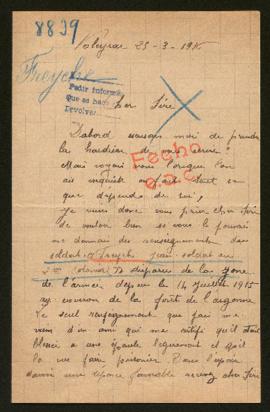 8839
Valeyrac 25-3-1915
Freyche
Pedir informe
que se hace
Devolver
Cher Sire
D'abord excusez moi de prendre
la hardiesse de vous écrire
Mais voyez vous lorsque l'on
est inquiet on fait tout ce
que dépend de soi,
Fecho
Je viens donc vous prier cher Sire
de vouloir bien si vous le pouvez
me donner des renseignements du
soldat Freyche Jean soldat au
2me colonial disparu de la zone
de l'armée depuis le 14 Juillet 1915
aux environ de la forêt de l'argonne
Le seul renseignement que j'ai me
vien d'un ami qui me certifie qu'il était
blessé a une épaule légèrement et qu'il
la vu fair prisonier. Dans l'espoir
davoir une réponse favorable recevez cher Sire